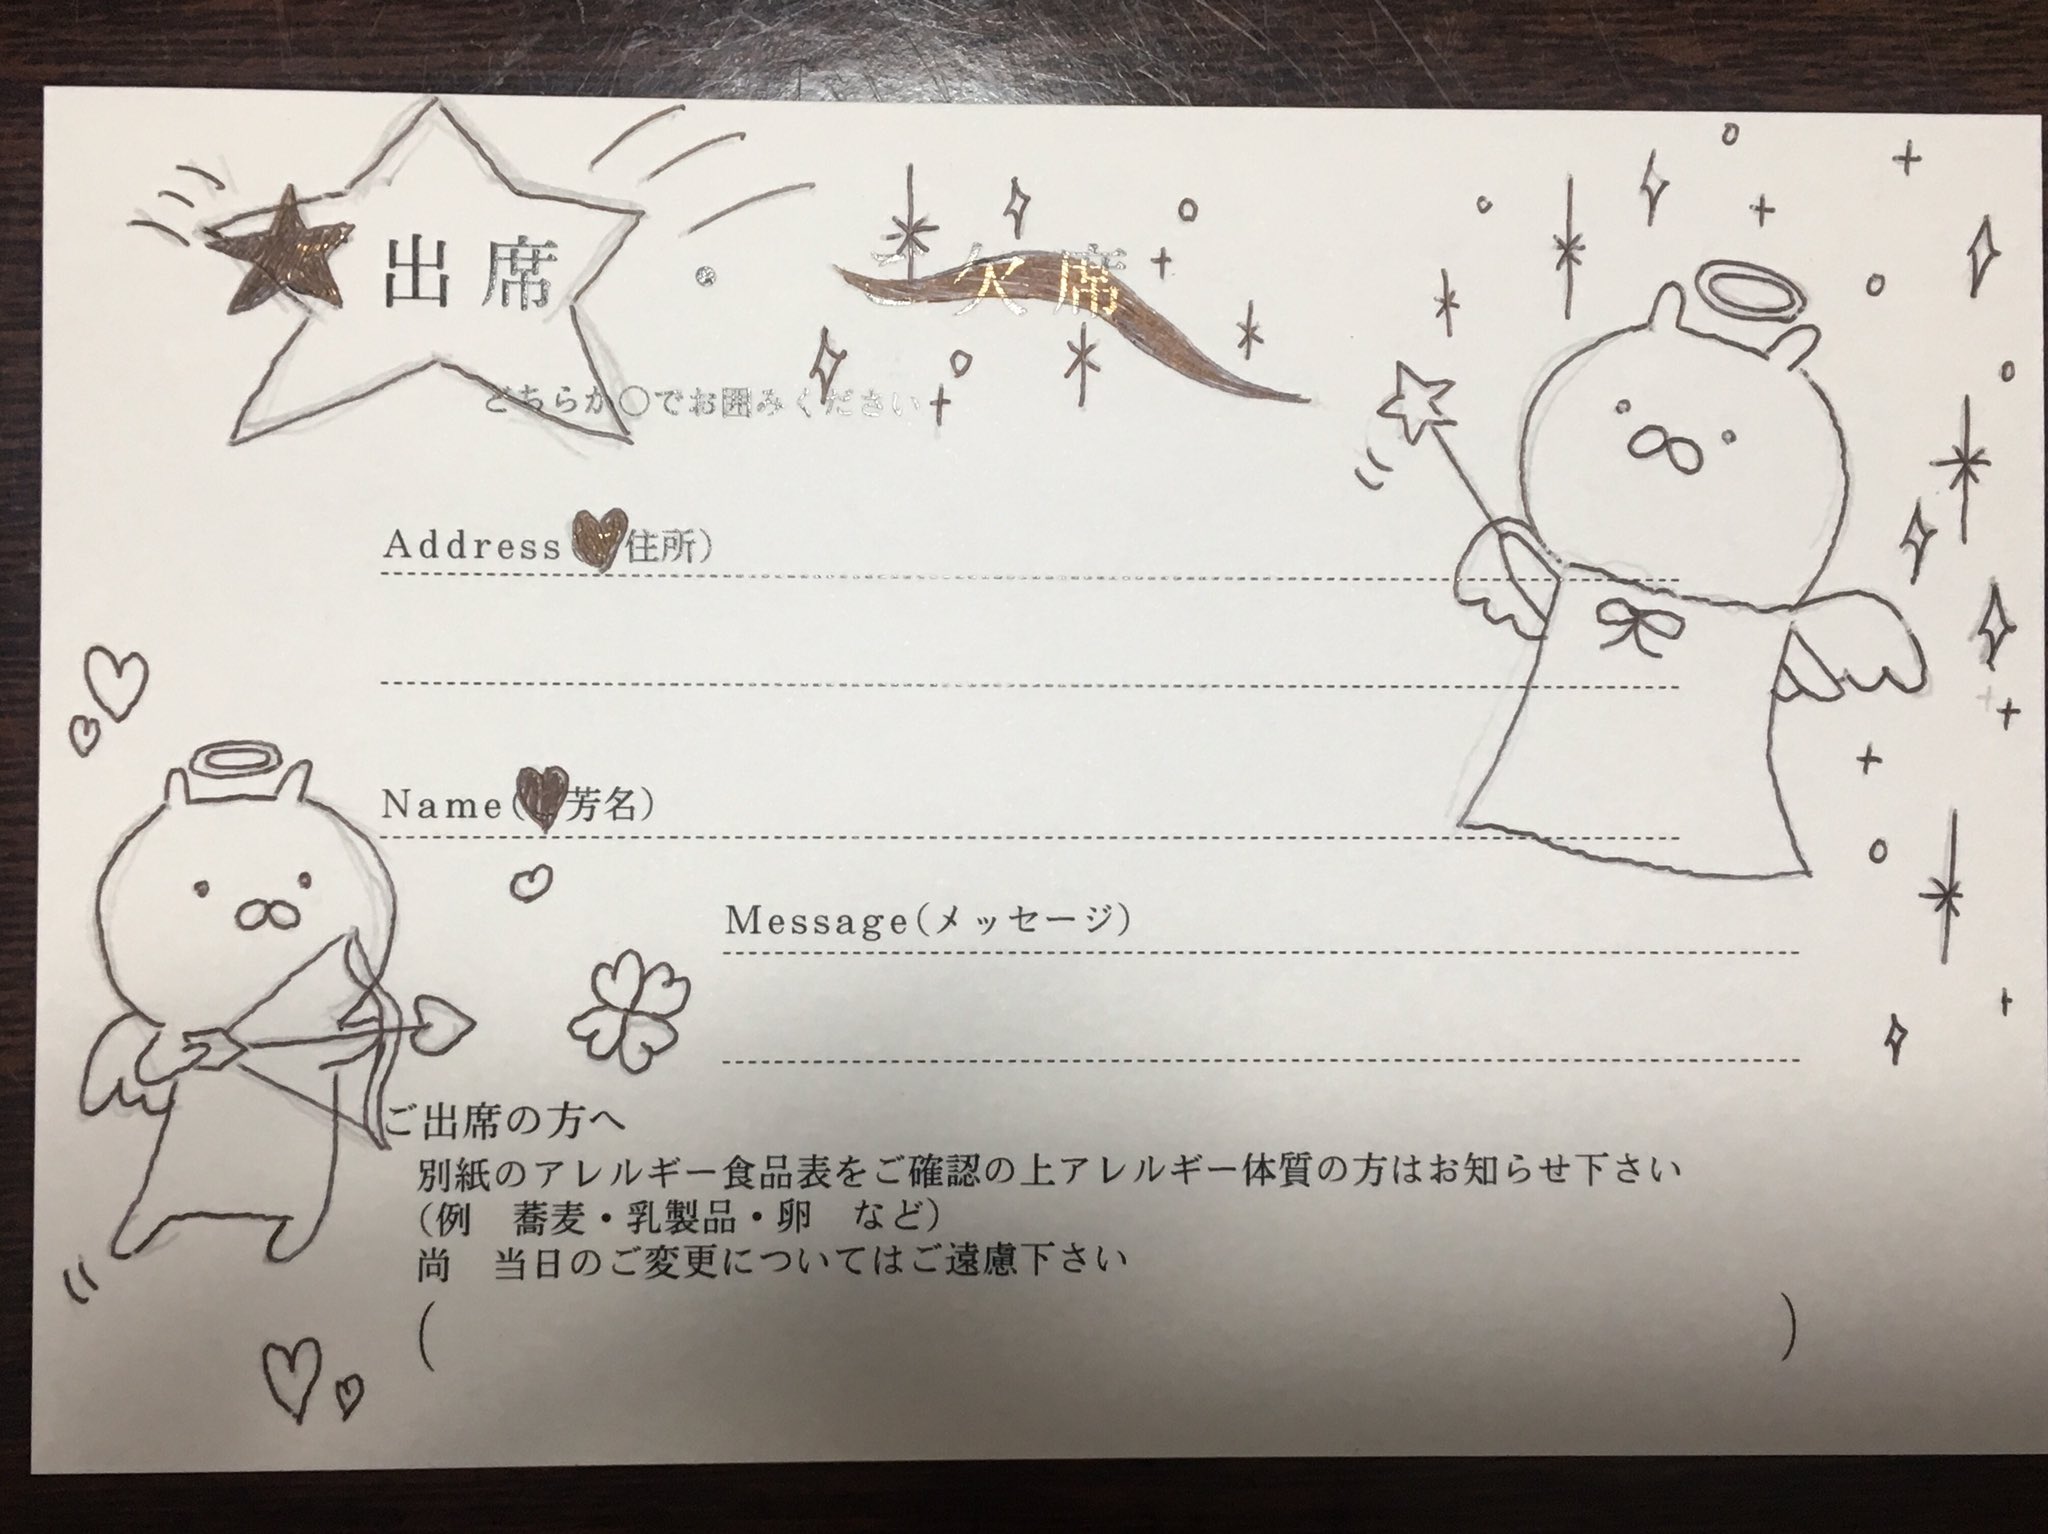 出席・ 欠席
どちらか○でお囲みください
Address 住所)
Name( 芳名)
Message(メッセージ)
ご出席の方へ
別紙のアレルギー食品表をご確認の上アレルギー体質の方はお知らせ下さい
(例　蕎麦・乳製品・卵　など)
尚　当日のご変更についてはご遠慮下さい
(　)